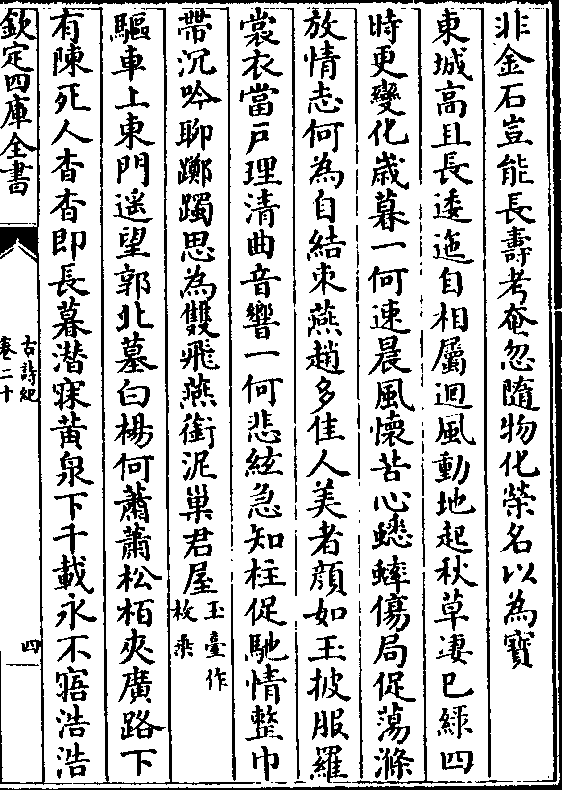 非金石豈能長壽考奄忽隨物化榮名以為寶
東城髙且長逶迤自相屬迴風動地起秋草凄已緑四
時更變化歳暮一何速晨風懷苦心蟋蟀傷局促蕩滌
放情志何為自結束燕趙多佳人美者顔如玉披服羅
裳衣當戸理清曲音響一何悲絃急知柱促馳情整巾
帶沉吟聊躑躅思為雙飛燕銜泥巢君屋玉臺作枚乘
驅車上東門遥望郭北墓白楊何蕭蕭松柏夾廣路下
有陳死人杳杳即長暮潜寐黄泉下千載永不寤浩浩
欽定四庫全書
古詩紀
卷二十
四